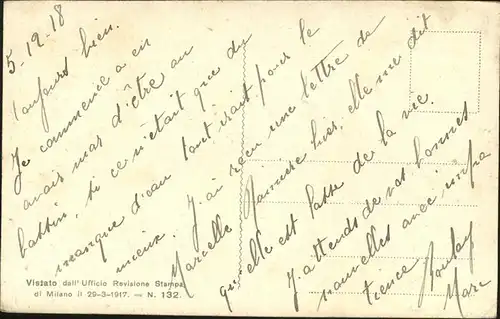 5-12-18
toujours bien.
Je commence a en
avais mar d'être au
battin, si ce n'était que du
manque d'eau tout irait pour le
mieux. J'ai reçu une lettre de
Marcelle Mannise hier, elle me dit
qu'elle est lasse de la vie.
J'attends de vos bonnes
nouvelles avec impa
tience
Marc
Vistato dall'Ufficio Revisione Stampa
di Milano il 29-3-1917. — N. 132.